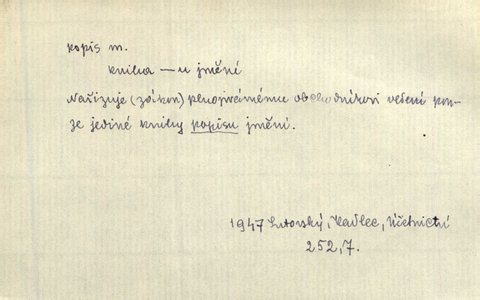 popis m.
kniha —u jmění
Nařizuje (zákon) plnoprávnému obchodníkovi vedení pou-
ze jediné knihy popisu jmění.
1947 Lutovský, Kadlec, Účetnictví
252,7.